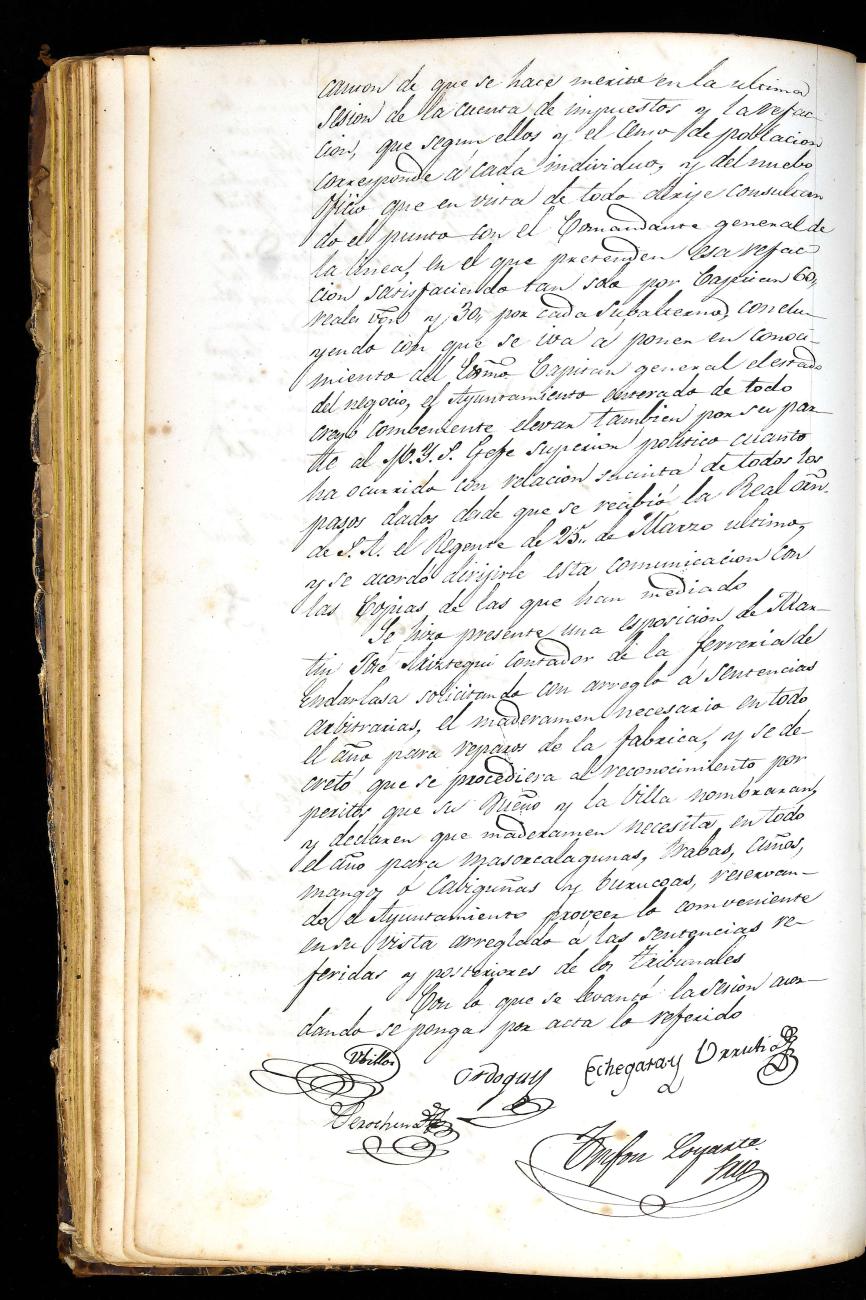 camon de que se hace merito en la ultima
sesion de la cuenta de impuestos y la refac-
cion, que segun ellos y el Censo de poblacion
corresponde á cada individuo, y del nuebo
Oficio que en vista de todo dirije consultan
do el punto con el Comandante general de
la linea, en el que pretenden esa refac
cion satisfaciendo tan solo por Capitan 60,,
reales von y 30,, por cada Subalterno, conclu-
yendo con que se iva a poner en conoci-
miento del Exmo Capitan general el estado
del negocio, el Ayuntamiento enterado de todo
creyo combeniente elevar tambien por su par-
te al M. Y. S. Gefe superior politico cuanto
ha ocurrido con relacion sucinta de todos los
pasos dados desde que se recibió la Real orn.
de S. A. el Regente de 25,, de Marzo ultimo,
y se acordó dirijirle esta comunicacion con
las Copias de las que han mediado
Se hizo presente una esposicion de Mar-
tin José Ariztegui contador de la ferreria de
Endarlasa solicitando con arreglo á sentencias
arbitrarias, el maderamen necesario en todo
el año para reparos de la fabrica, y se de-
cretó que se procediera al reconocimiento por
peritos que su Dueño y la Villa nombraran,
y declaren que maderamen necesita en todo
el año para masorcalagunas, trabas, cuños,
mangos o Cabiguñas y burucoas, reservan-
do el Ayuntamiento proveer lo combeniente
en su vista arreglado á las sentencias re-
feridas y posteriores de los tribunales
Con lo que se levantó la sesion acor-
dando se ponga por acta lo referido
Ubillos
Ordoquy Echegaray Urrutia
Perochena
Loyarte
Srio